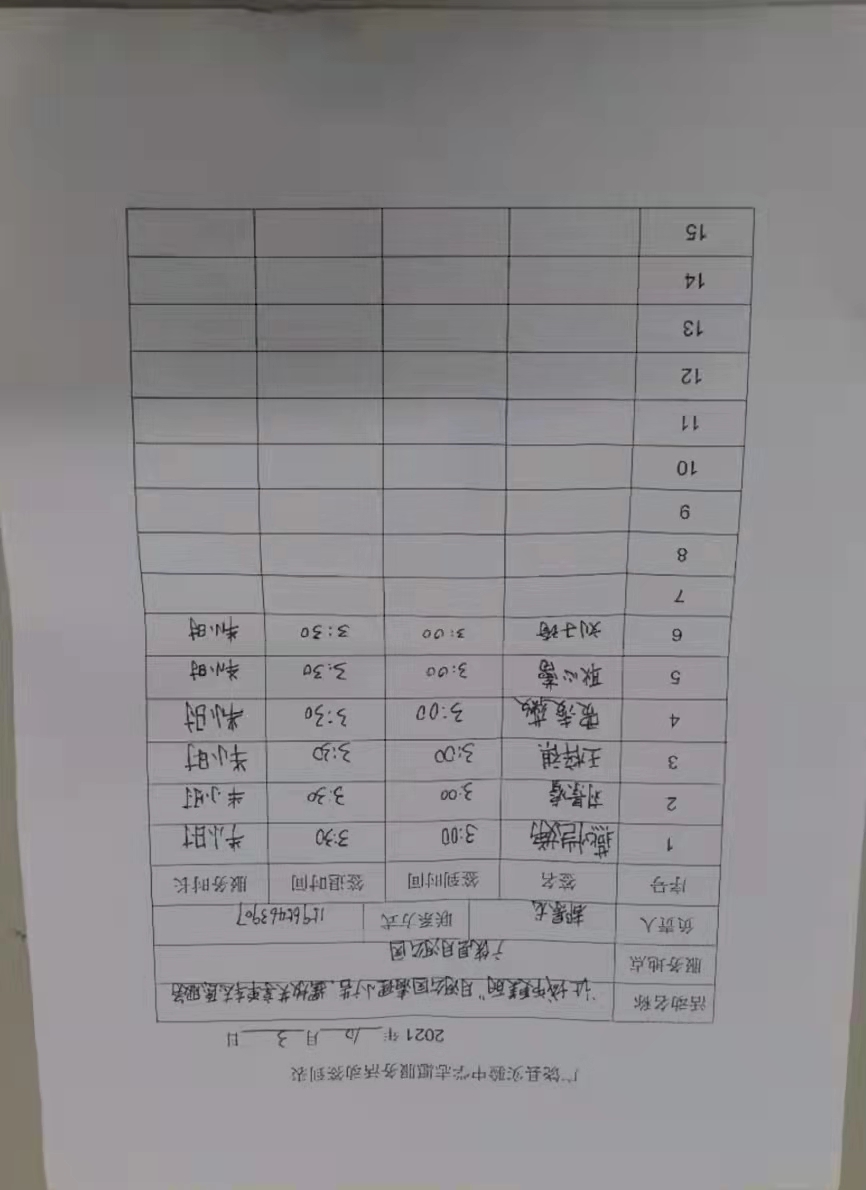 广饶县实验中学志愿服务活动签到表
2021 年 10 月 3 日
活动名称 "让城市更美丽"月河公园清理小广告、摆放共享单车志愿服务
服务地点 广饶县月河公园
负责人 联系方式
序号 签名 签到时间 签退时间 服务时长
1 3:00 3:30 半小时
2 3:00 3:30 半小时
3 王梓祺 3:00 3:30 半小时
4 3:00 3:30 半小时
5 耿心 3:00 3:30 半小时
6 刘子琦 3:00 3:30 半小时
7
8
9
10
11
12
13
14
15